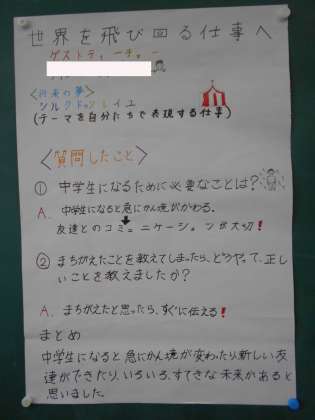 世界を飛び回る仕事へ
ゲストティーチャー
<将来の夢>
シルクドゥソレイユ
(テーマを自分たちで表現する仕事)
<質問したこと>
① 中学生になるために必要なことは?
A. 中学生になると急にかん境がかわる。
友達とのコミュニケーションが大切!
② まちがえたことを教えてしまったら、どうやって、正し
いことを教えましたか?
A. まちがえたと思ったら、すぐに伝える!
まとめ
中学生になると急にかん境が変わったり新しい友
達ができたり、いろいろ、すてきな未来があると
思いました。